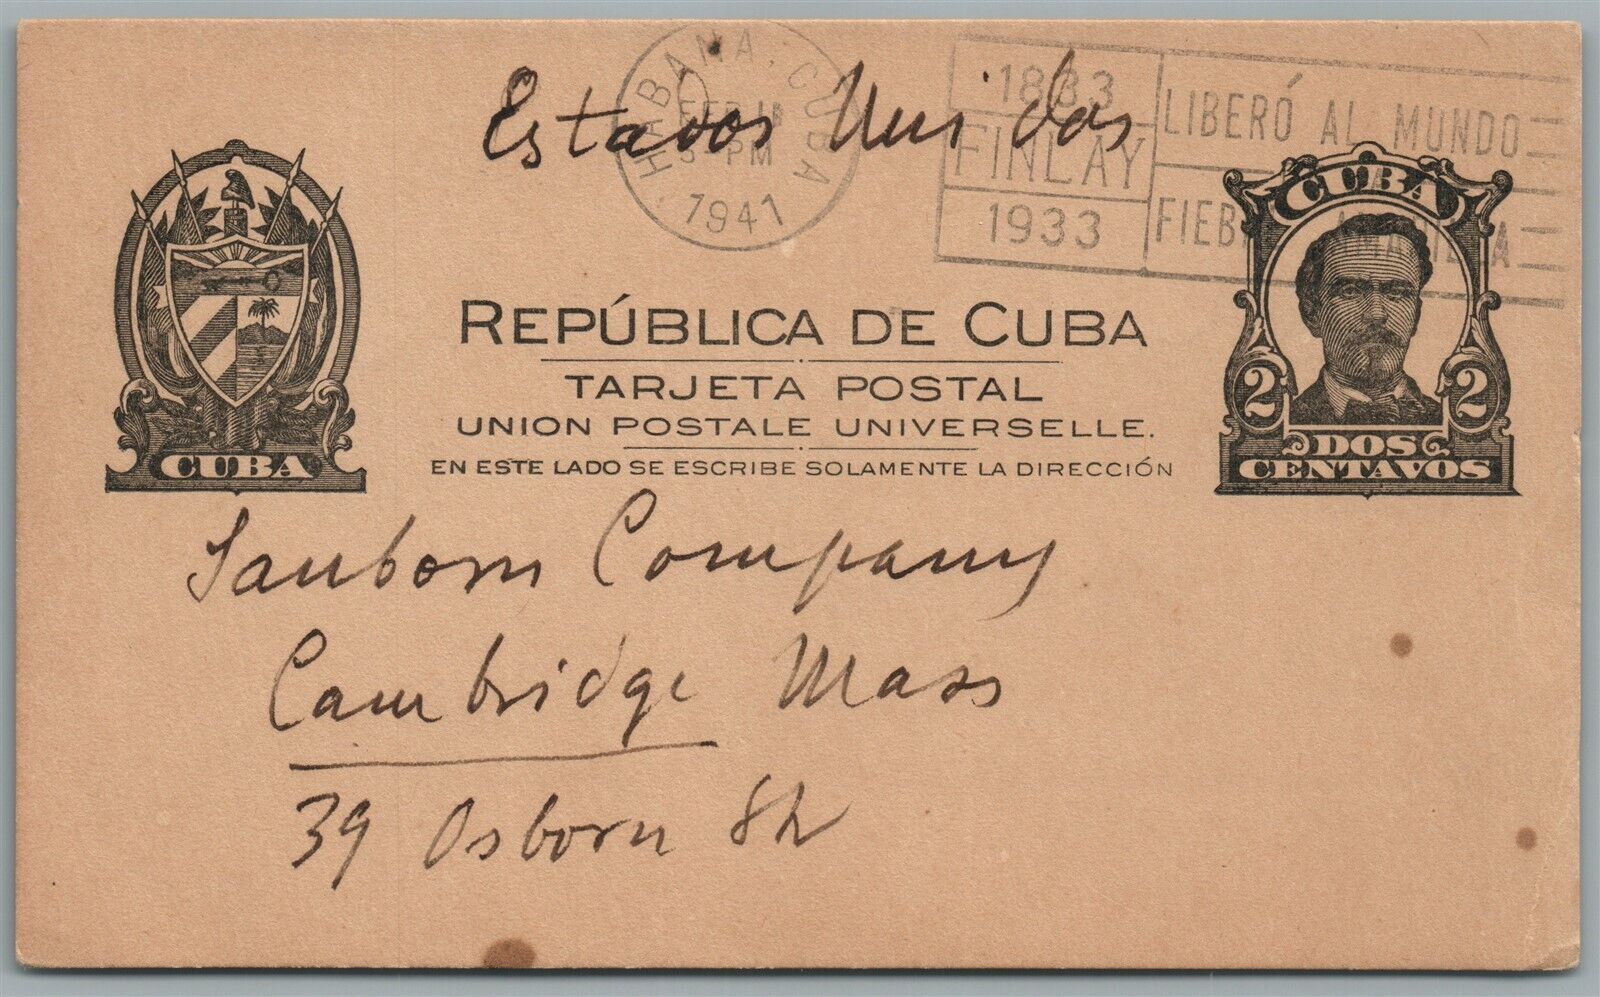 Estados Unidos
HABANA, CUBA
FEB 18
PM
1941
1833
FINLAY
1933
LIBERÓ AL MUNDO
FIEBRE AMARILLA
CUBA
REPÚBLICA DE CUBA
TARJETA POSTAL
UNION POSTALE UNIVERSELLE.
EN ESTE LADO SE ESCRIBE SOLAMENTE LA DIRECCIÓN
CUBA
2 2
DOS
CENTAVOS
Sanborn Company
Cambridge Mass
39 Osborn St